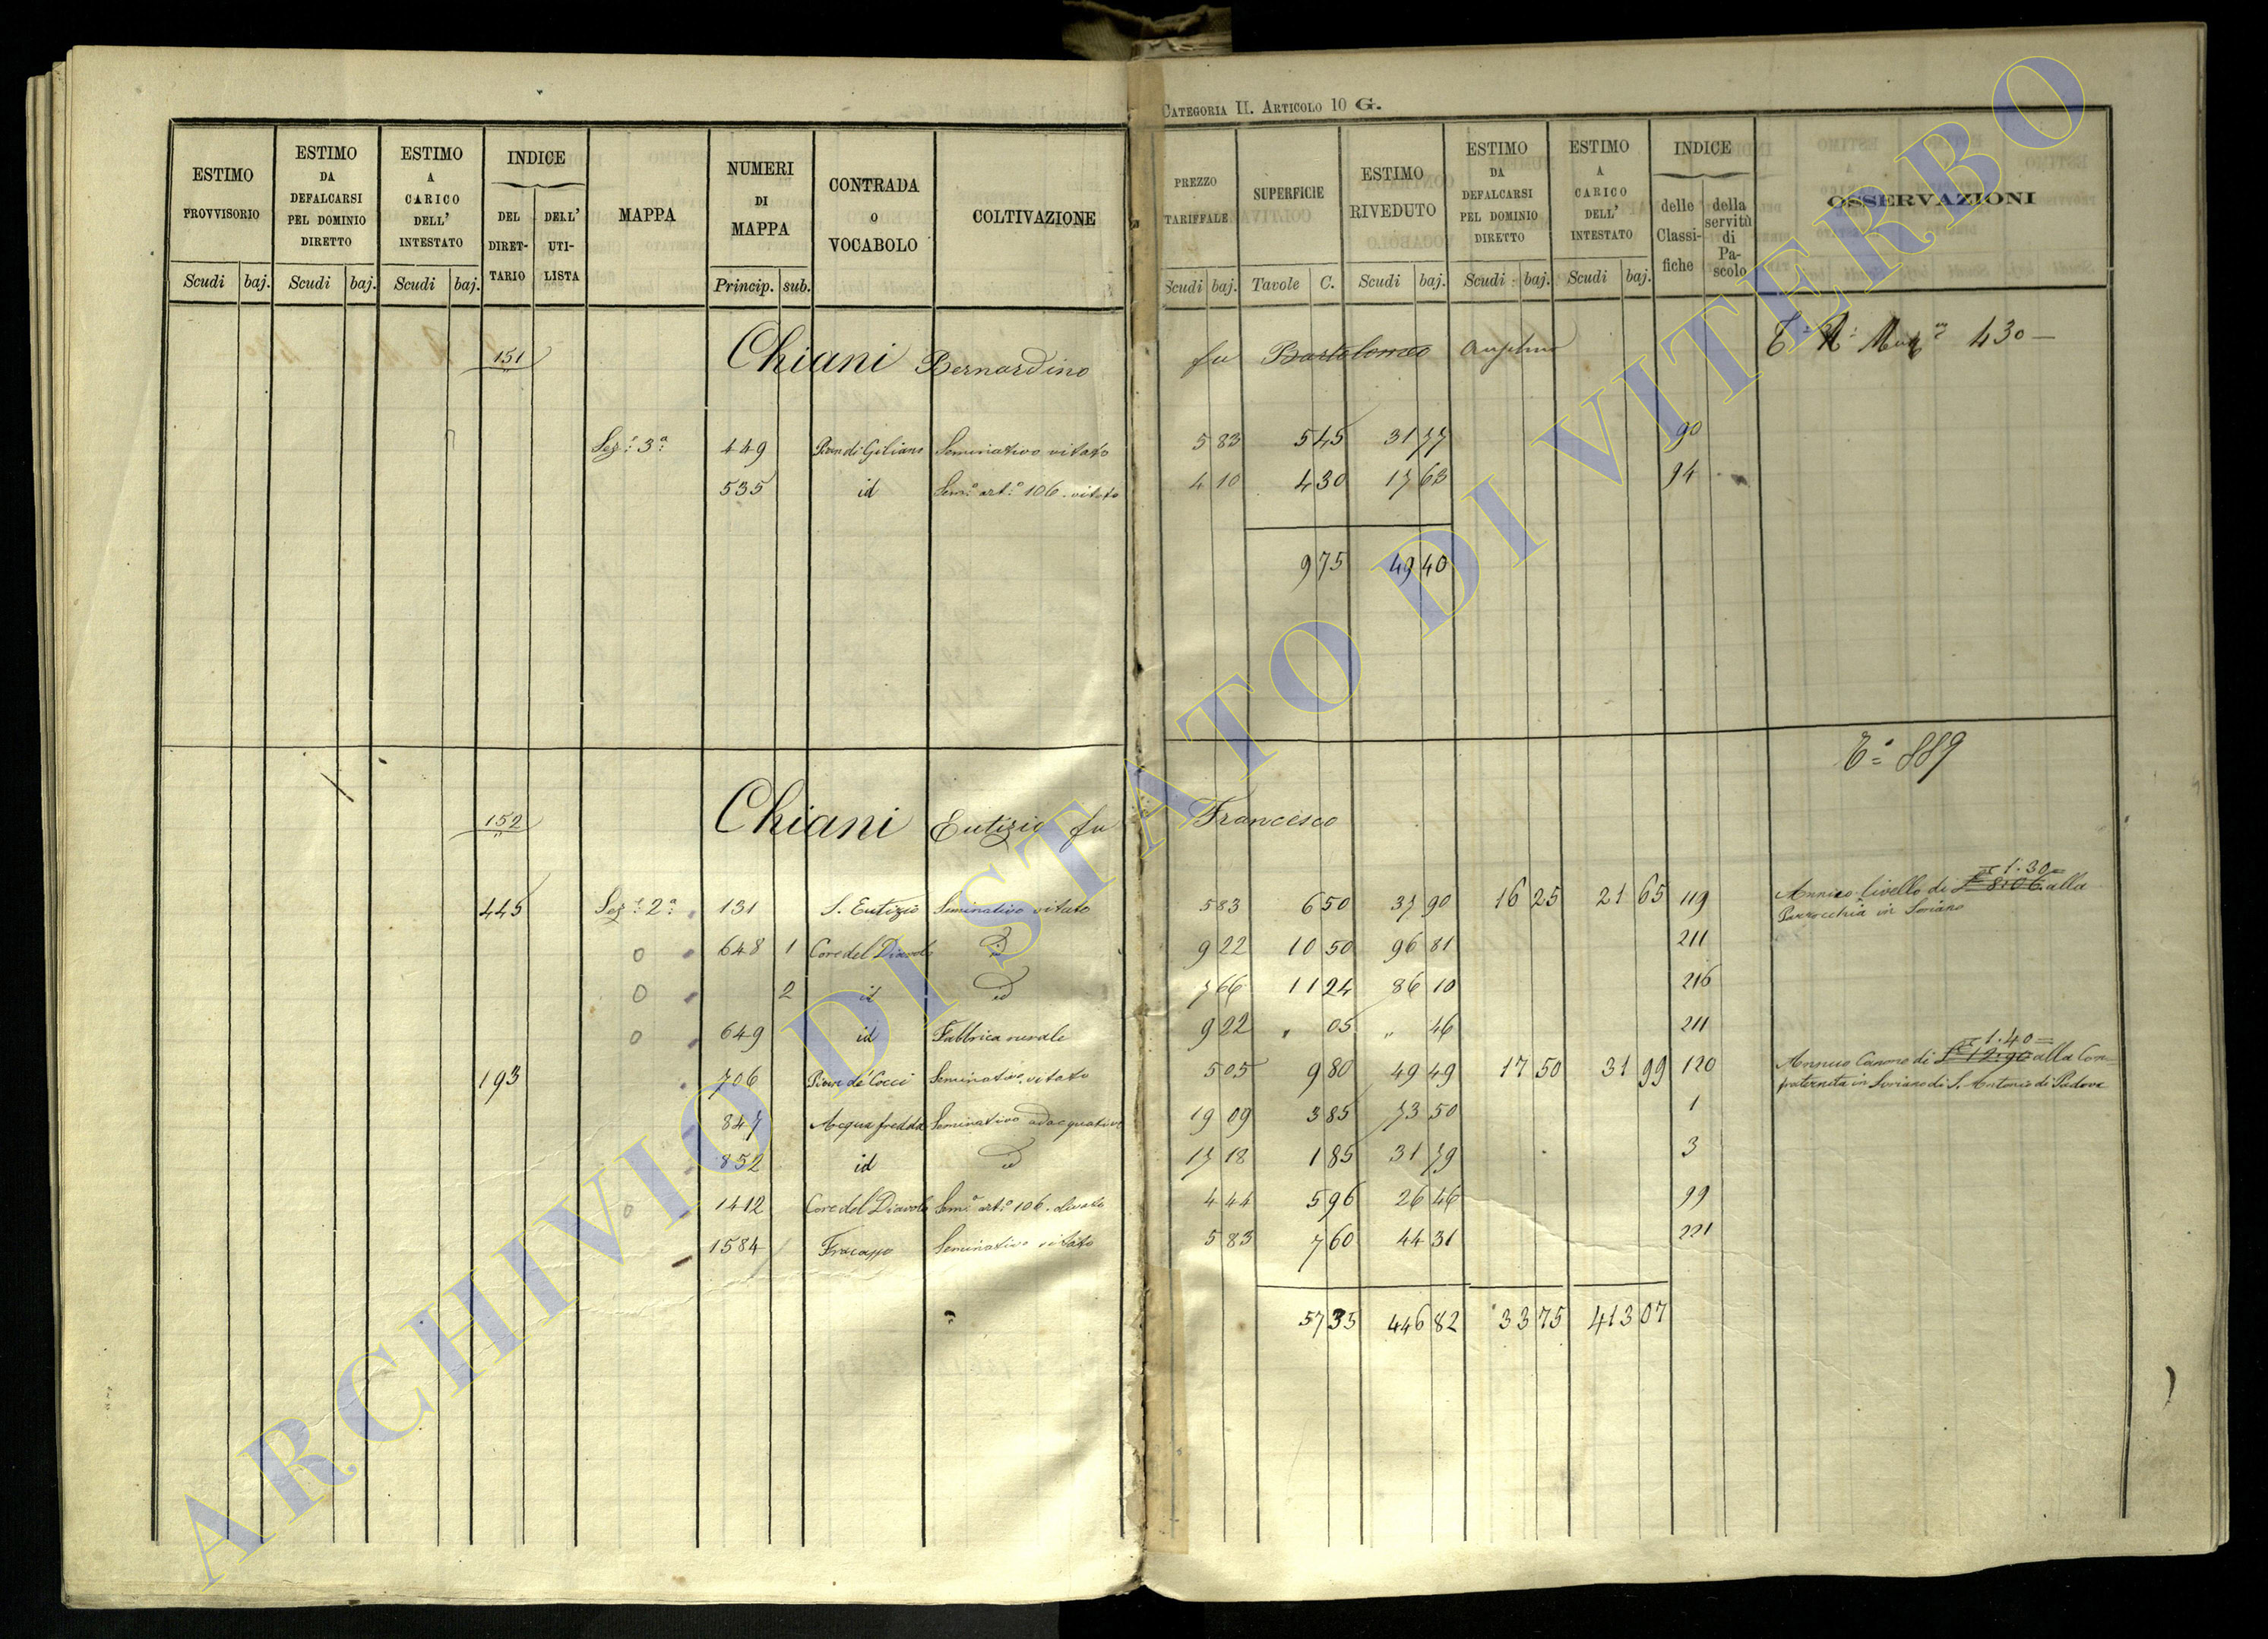 CATEGORIA II. ARTICOLO 10 G.
ESTIMO PROVVISORIO Scudi baj.
ESTIMO DA DEFALCARSI PEL DOMINIO DIRETTO Scudi baj.
ESTIMO A CARICO DELL' INTESTATO Scudi baj.
INDICE DEL DIRET-TARIO DELL' UTI-LISTA
MAPPA
NUMERI DI MAPPA Princip. sub.
CONTRADA O VOCABOLO
COLTIVAZIONE
PREZZO TARIFFALE Scudi baj.
SUPERFICIE Tavole C.
ESTIMO RIVEDUTO Scudi baj.
ESTIMO DA DEFALCARSI PEL DOMINIO DIRETTO Scudi baj.
ESTIMO A CARICO DELL' INTESTATO Scudi baj.
INDICE delle Classi-fiche della servitù di Pa-scolo
OSSERVAZIONI
151 Chiani Bernardino fu Bartolomeo 430
Sez. 3ª 449 Pian di Giliano Seminativo vitato 5 83 5 45 31 77 90
535 id Sem.º art.º 106. vitato 4 10 4 30 17 63 94
9 75 49 40
Tª 889
152 Chiani Eutizio fu Francesco
= 1.30 =
445 Sez. 2ª 131 S. Eutizio Seminativo vitato 5 83 6 50 37 90 16 25 21 65 119 Annuo livello di £ 8.06 alla
Parrocchia in Soriano
648 1 Core del Diavolo id 9 22 10 50 96 81 211
2 id id 7 66 11 24 86 10 216
649 id Fabbrica rurale 9 22 " 05 " 46 211
= 1.40 =
193 706 Pian de' Cocci Seminativo vitato 5 05 9 80 49 49 17 50 31 99 120 Annuo Canone di alla Con=
fraternita in Soriano di S. Antonio di Padova
847 Acqua fredda Seminativo adacquativo 19 09 3 85 73 50 1
852 id id 17 18 1 85 31 79 3
1412 Core del Diavolo Sem.º art.º 106. olivato 4 44 5 96 26 46 99
1584 Seminativo vitato 5 83 7 60 44 31 221
57 35 446 82 33 75 413 07
ARCHIVIO DI STATO DI VITERBO